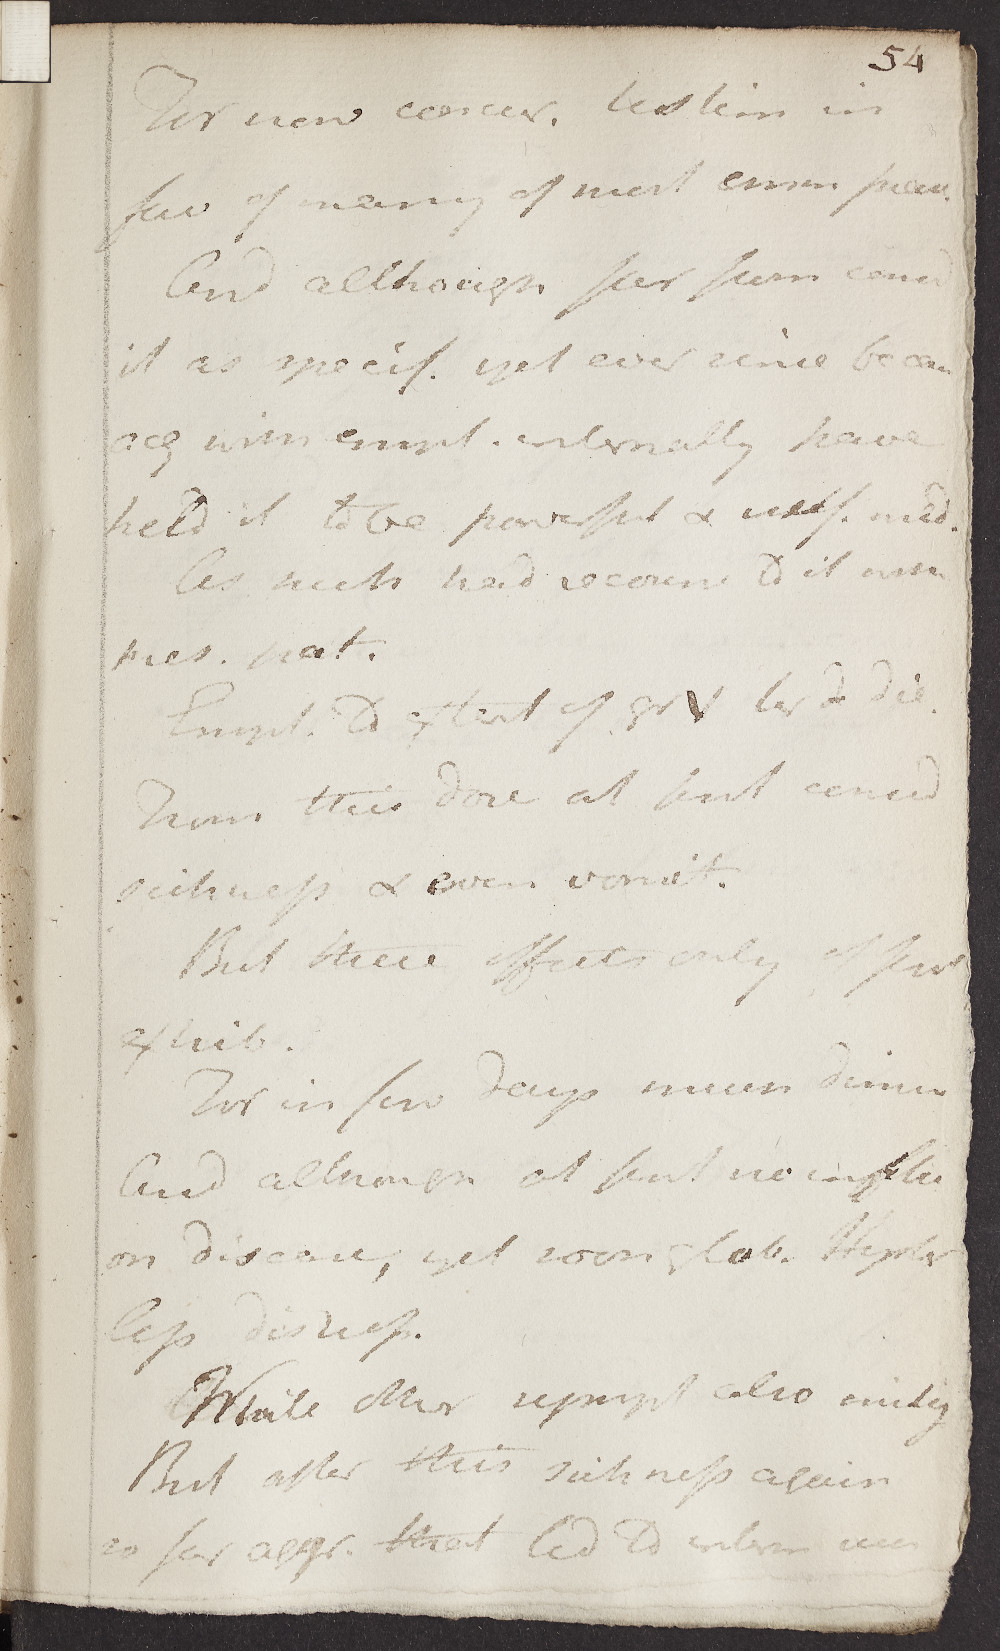 54
For now concur. testim in
fav of many of most emin prac.
And although far from consid
it as specif. yet ever since becam
acq with empl. internally have
held it to be powerful & usef. med.
As such had recourse to it with
pres. pat.
Empl. to extent of gr V ter de die.
From this dose at first consid
sickness & even vomit.
But these effects only of first
exhib.
For in few days much dimin
And although at first no influ
on disease, yet soon glob. Hyster
less distress.
While other sympt also mitig
But after this sickness again
so far aggr. that led to interm use